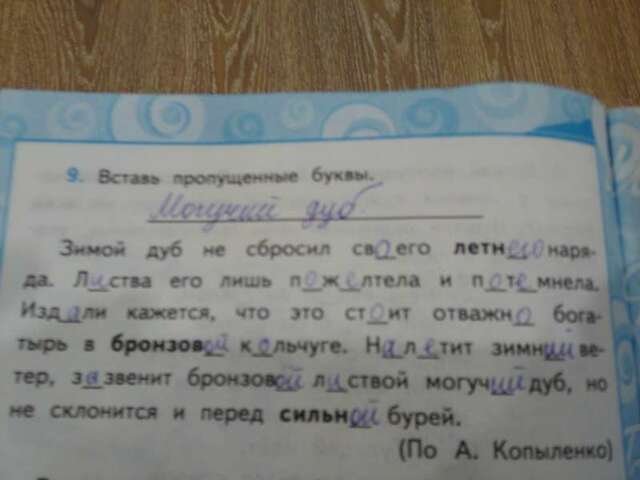 9. Вставь пропущенные буквы.
Могучий дуб.
Зимой дуб не сбросил своего летнего наря-
да. Листва его лишь пожелтела и потемнела.
Издали кажется, что это стоит отважно бога-
тырь в бронзовой кольчуге. Налетит зимний ве-
тер, зазвенит бронзовой листвой могучий дуб, но
не склонится и перед сильной бурей.
(По А. Копыленко)